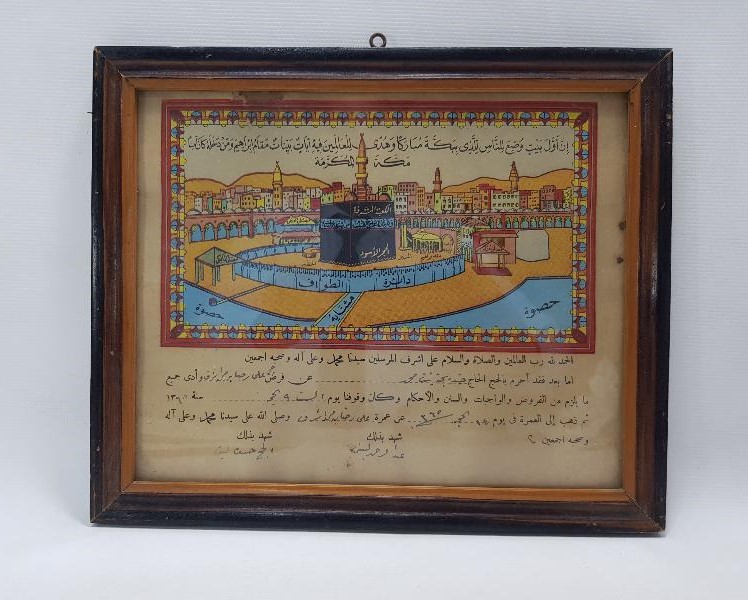 إن أول بيت وضع للناس للذي ببكة مباركا وهدى للعالمين فيه آيات بينات مقام إبراهيم ومن دخله كان آمنا
مكة المكرمة
الكعبة المشرفة
الحجر الأسود
دائرة الطواف
حصوة
مشاية
حصوة
الحمد لله رب العالمين والصلاة والسلام على اشرف المرسلين سيدنا محمد وعلى آله وصحبه اجمعين
اما بعد فقد أحرم بالحج الحاج عن فرض وأدى جميع
ما يلزم من الفروض والواجبات والسنن والأحكام وكان وقوفنا يوم ٩ سنة ١٣
ثم ذهب إلى العمرة في يوم عن عمرة وصلى الله على سيدنا محمد وعلى آله
وصحبه اجمعين
شهد بذلك شهد بذلك